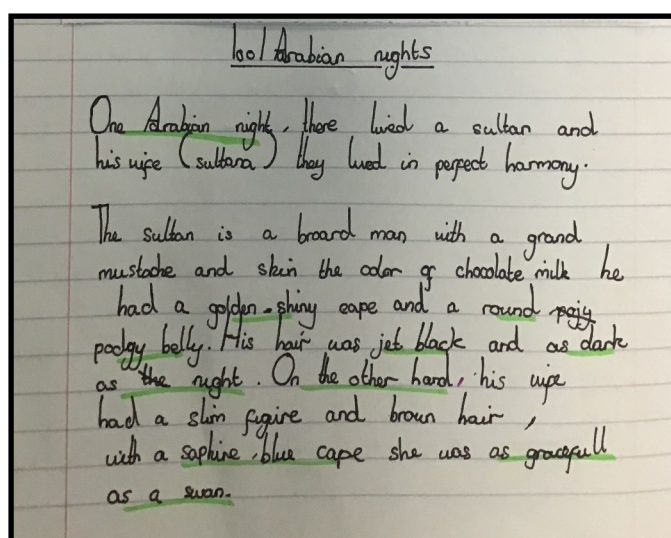 1001 Arabian nights
One Arabian night, there lived a sultan and
his wife (sultana) they lived in perfect harmony.
The sultan is a broard man with a grand
mustache and skin the color of chocolate milk he
had a golden-shiny cape and a round pojy
podgy belly. His hair was jet black and as dark
as the night. On the other hand, his wife
had a slim figire and brown hair,
with a saphire, blue cape she was as gracefull
as a swan.